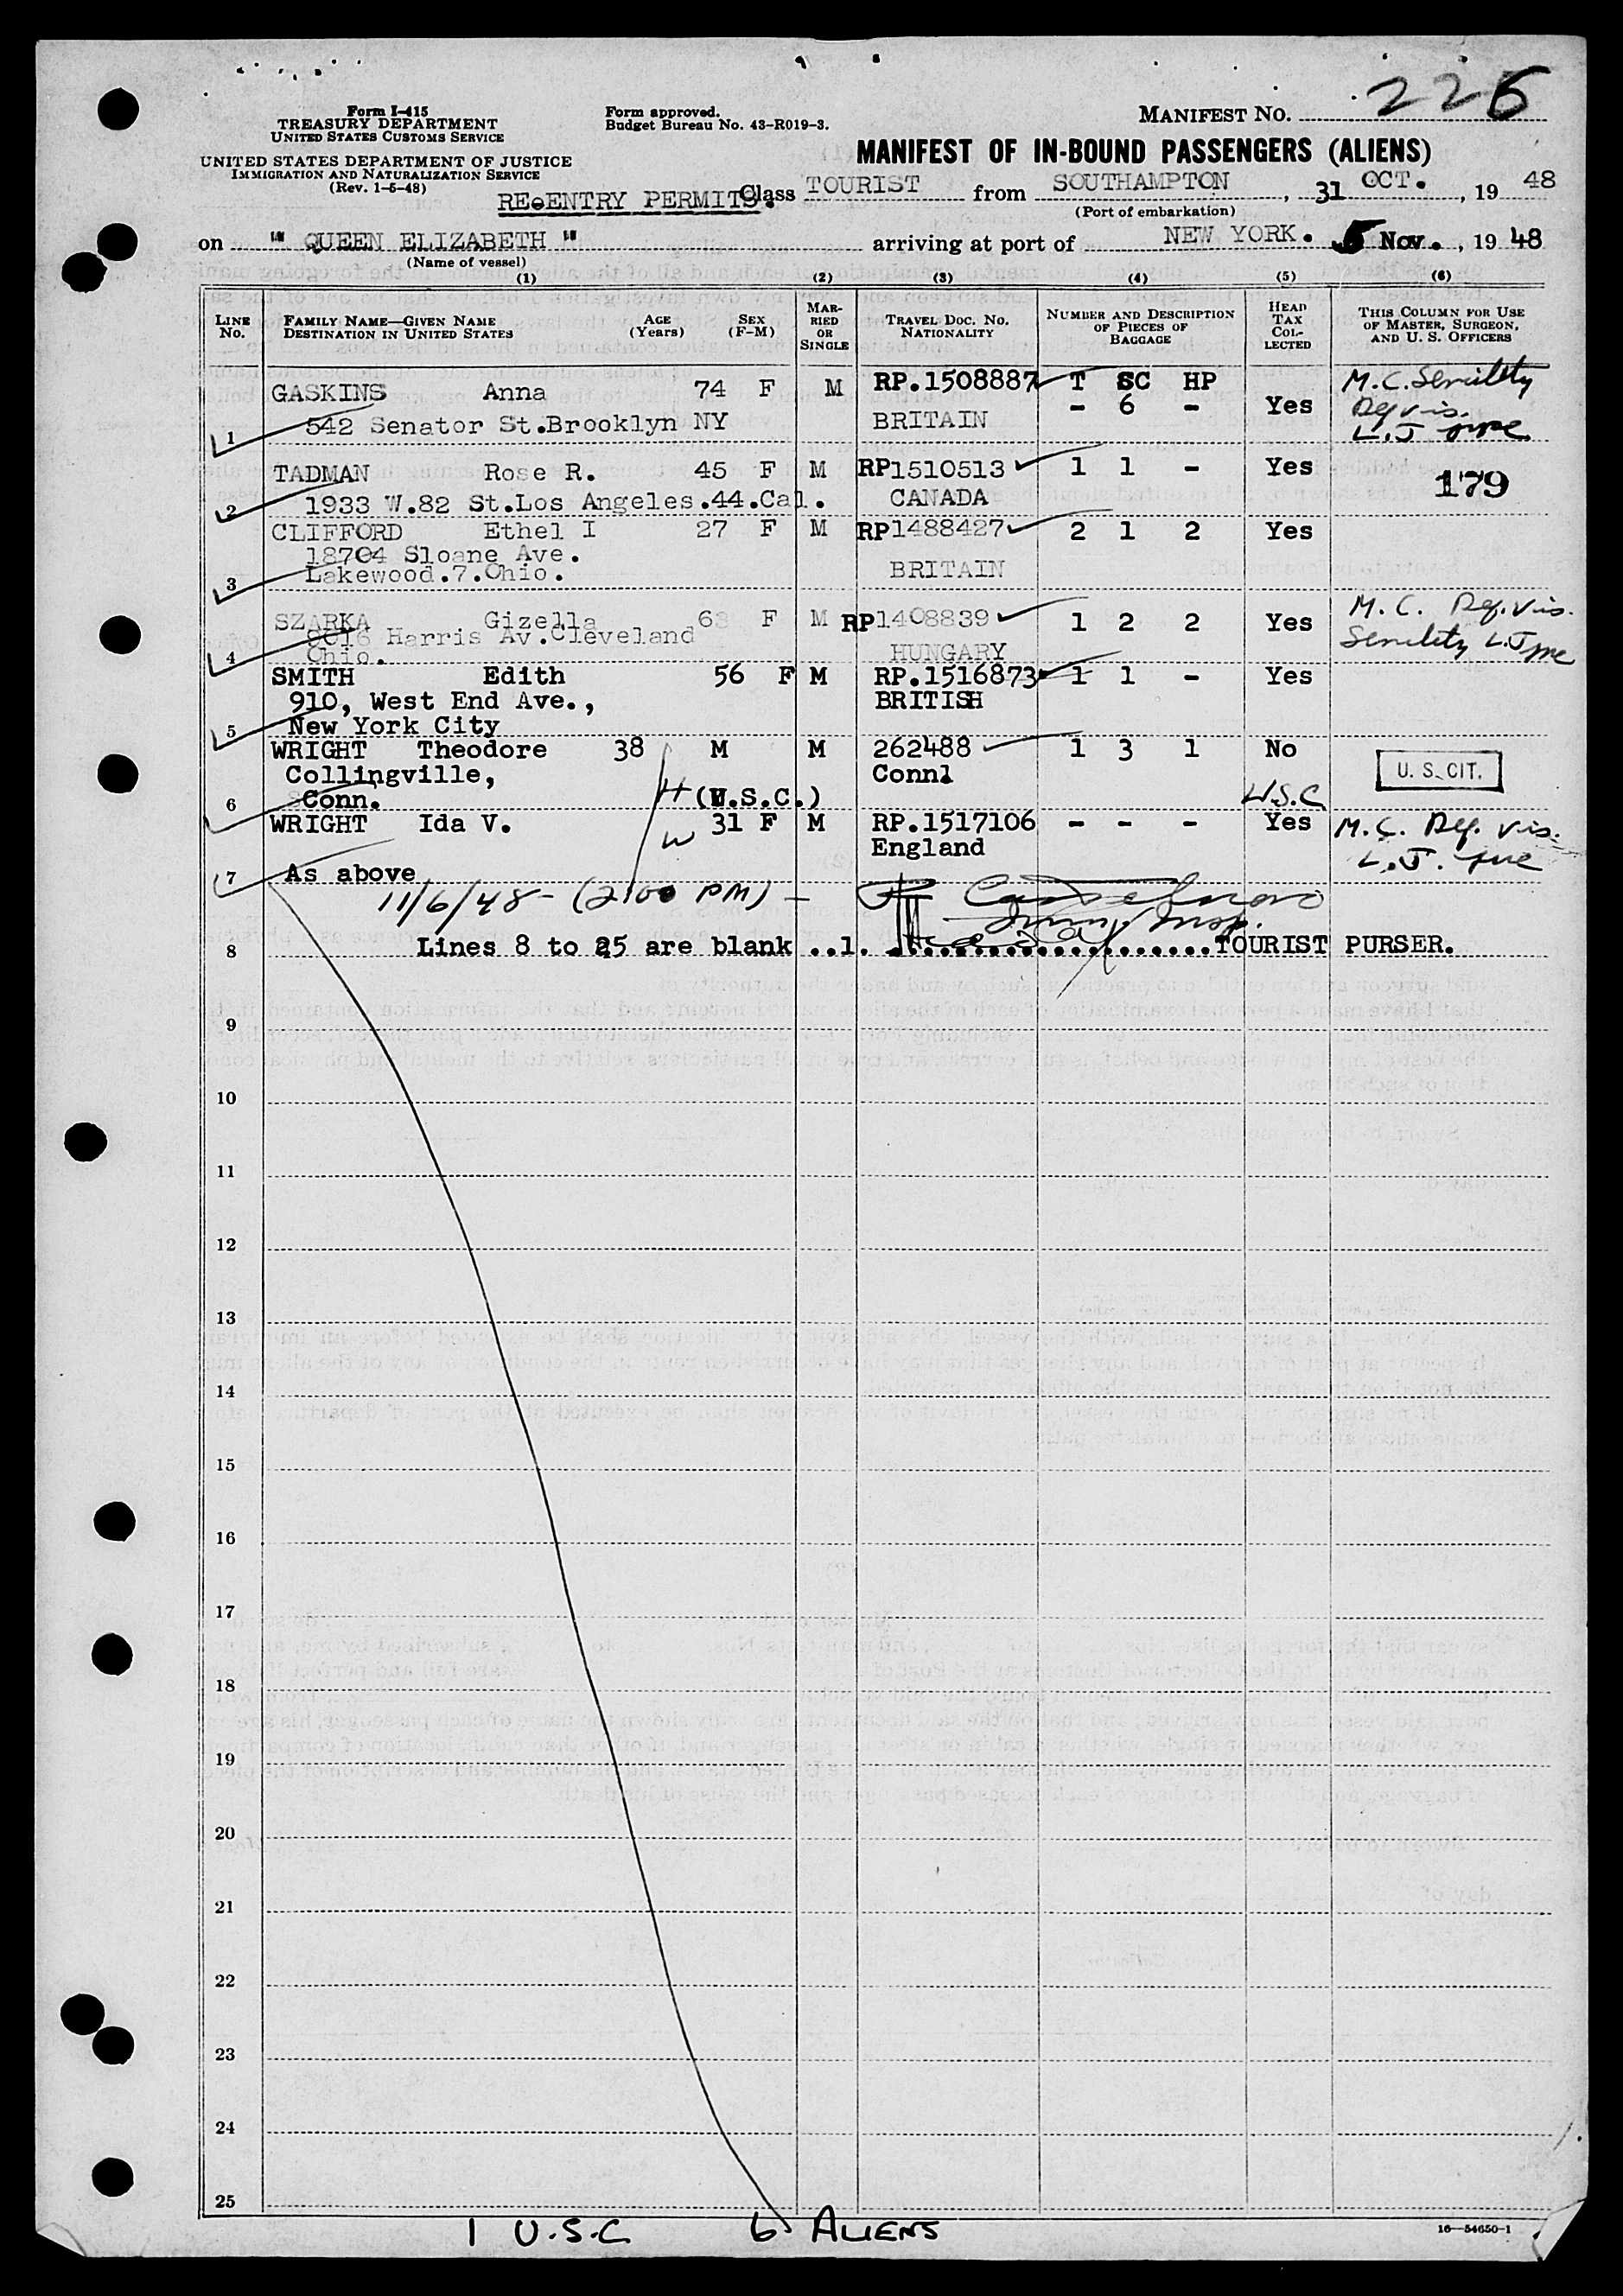 Form I-415
TREASURY DEPARTMENT
UNITED STATES CUSTOMS SERVICE
UNITED STATES DEPARTMENT OF JUSTICE
IMMIGRATION AND NATURALIZATION SERVICE
(Rev. 1-5-48)
Form approved.
Budget Bureau No. 43-R019-3.
MANIFEST NO. 226
MANIFEST OF IN-BOUND PASSENGERS (ALIENS)
RE-ENTRY PERMITS. Class TOURIST from SOUTHAMPTON, 31 OCT., 19 48
(Port of embarkation)
on " QUEEN ELIZABETH " arriving at port of NEW YORK. 5 Nov., 19 48
(Name of vessel)
(1) (2) (3) (4) (5) (6)
LINE No. FAMILY NAME—GIVEN NAME DESTINATION IN UNITED STATES AGE (Years) SEX (F-M) MARRIED OR SINGLE TRAVEL DOC. NO. NATIONALITY NUMBER AND DESCRIPTION OF PIECES OF BAGGAGE HEAD TAX COLLECTED THIS COLUMN FOR USE OF MASTER, SURGEON, AND U. S. OFFICERS
GASKINS Anna 74 F M RP.1508887 T SC HP M.C. Senility
- 6 - Yes Def vis.
1 542 Senator St.Brooklyn NY BRITAIN L.J
TADMAN Rose R. 45 F M RP1510513 1 1 - Yes 179
2 1933 W.82 St.Los Angeles.44.Cal. CANADA
CLIFFORD Ethel I 27 F M RP1488427 2 1 2 Yes
18704 Sloane Ave.
3 Lakewood.7.Ohio. BRITAIN
SZARKA Gizella 63 F M RP1408839 1 2 2 Yes M.C. Def. vis.
Harris Av.Cleveland Senility L.J
4 Ohio. HUNGARY
SMITH Edith 56 F M RP.1516873 1 1 - Yes
910, West End Ave., BRITISH
5 New York City
WRIGHT Theodore 38 M M 262488 1 3 1 No
Collingville, Connl U. S. CIT.
6 Conn. H (U.S.C.) U.S.C
WRIGHT Ida V. W 31 F M RP.1517106 - - - Yes M.C. Def. vis.
England L.J.
7 As above
11/6/48 - (2:00 PM) -
Immi Insp.
8 Lines 8 to 25 are blank ..1. ....................TOURIST PURSER.
9
10
11
12
13
14
15
16
17
18
19
20
21
22
23
24
25
1 U.S.C 6 ALIENS
16—54650-1